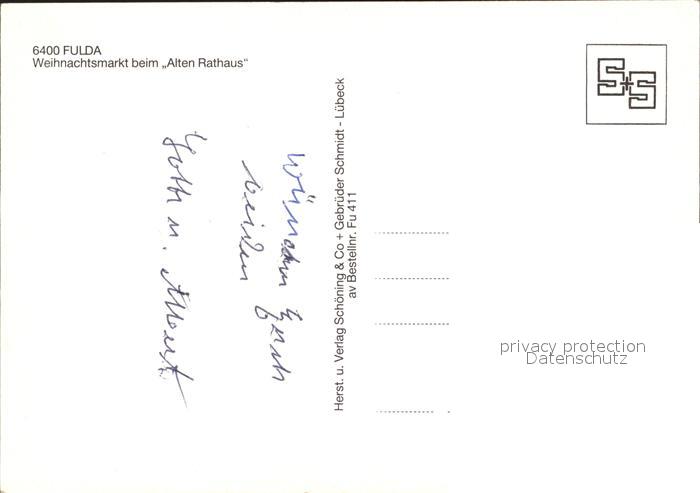 6400 FULDA
Weihnachtsmarkt beim „Alten Rathaus“
S+S
Herst. u. Verlag Schöning & Co + Gebrüder Schmidt - Lübeck
av Bestellnr. Fu 411
wünschen Euch
beiden
u. Albert
privacy protection
Datenschutz